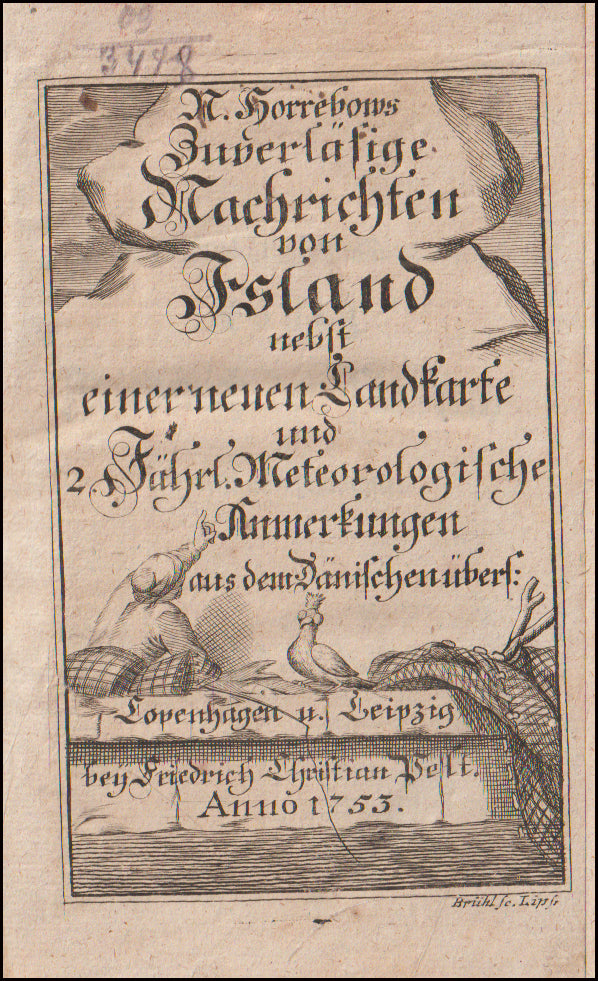 3448
N. Horrebows
Zuverläsige
Nachrichten
von
Island
nebst
einer neuen Landkarte
und
2. Jährl. Meteorologische
Anmerkungen
aus dem Dänischen übers:
Copenhagen u. Leipzig
bey Friedrich Christian Pelt.
Anno 1753.
Brühl sc. Lips.